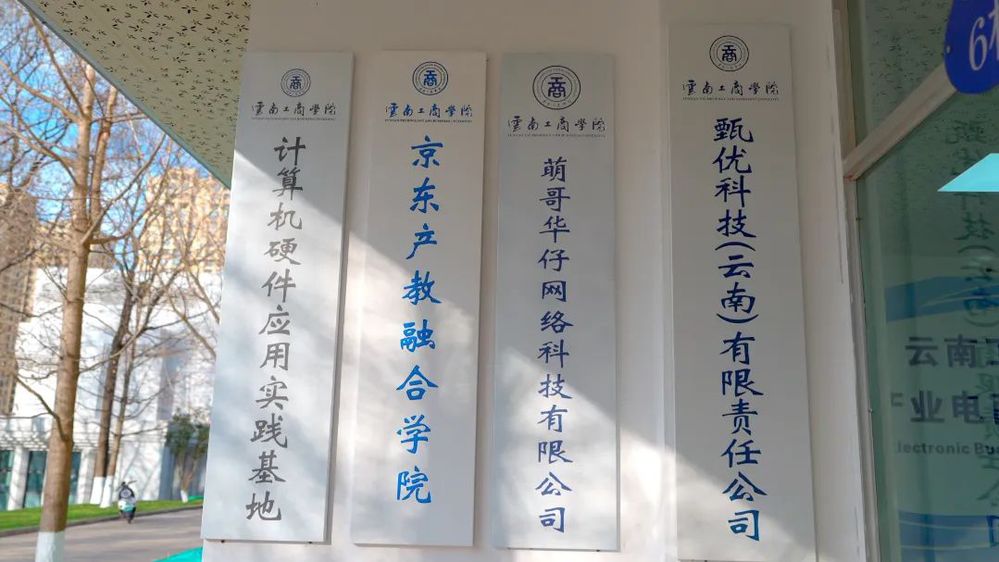 雲南工商學院
计算机硬件应用实践基地
雲南工商學院
京东产教融合学院
雲南工商學院
萌哥华仔网络科技有限公司
雲南工商學院
甄优科技(云南)有限责任公司
云南
业电
lectronic Bu